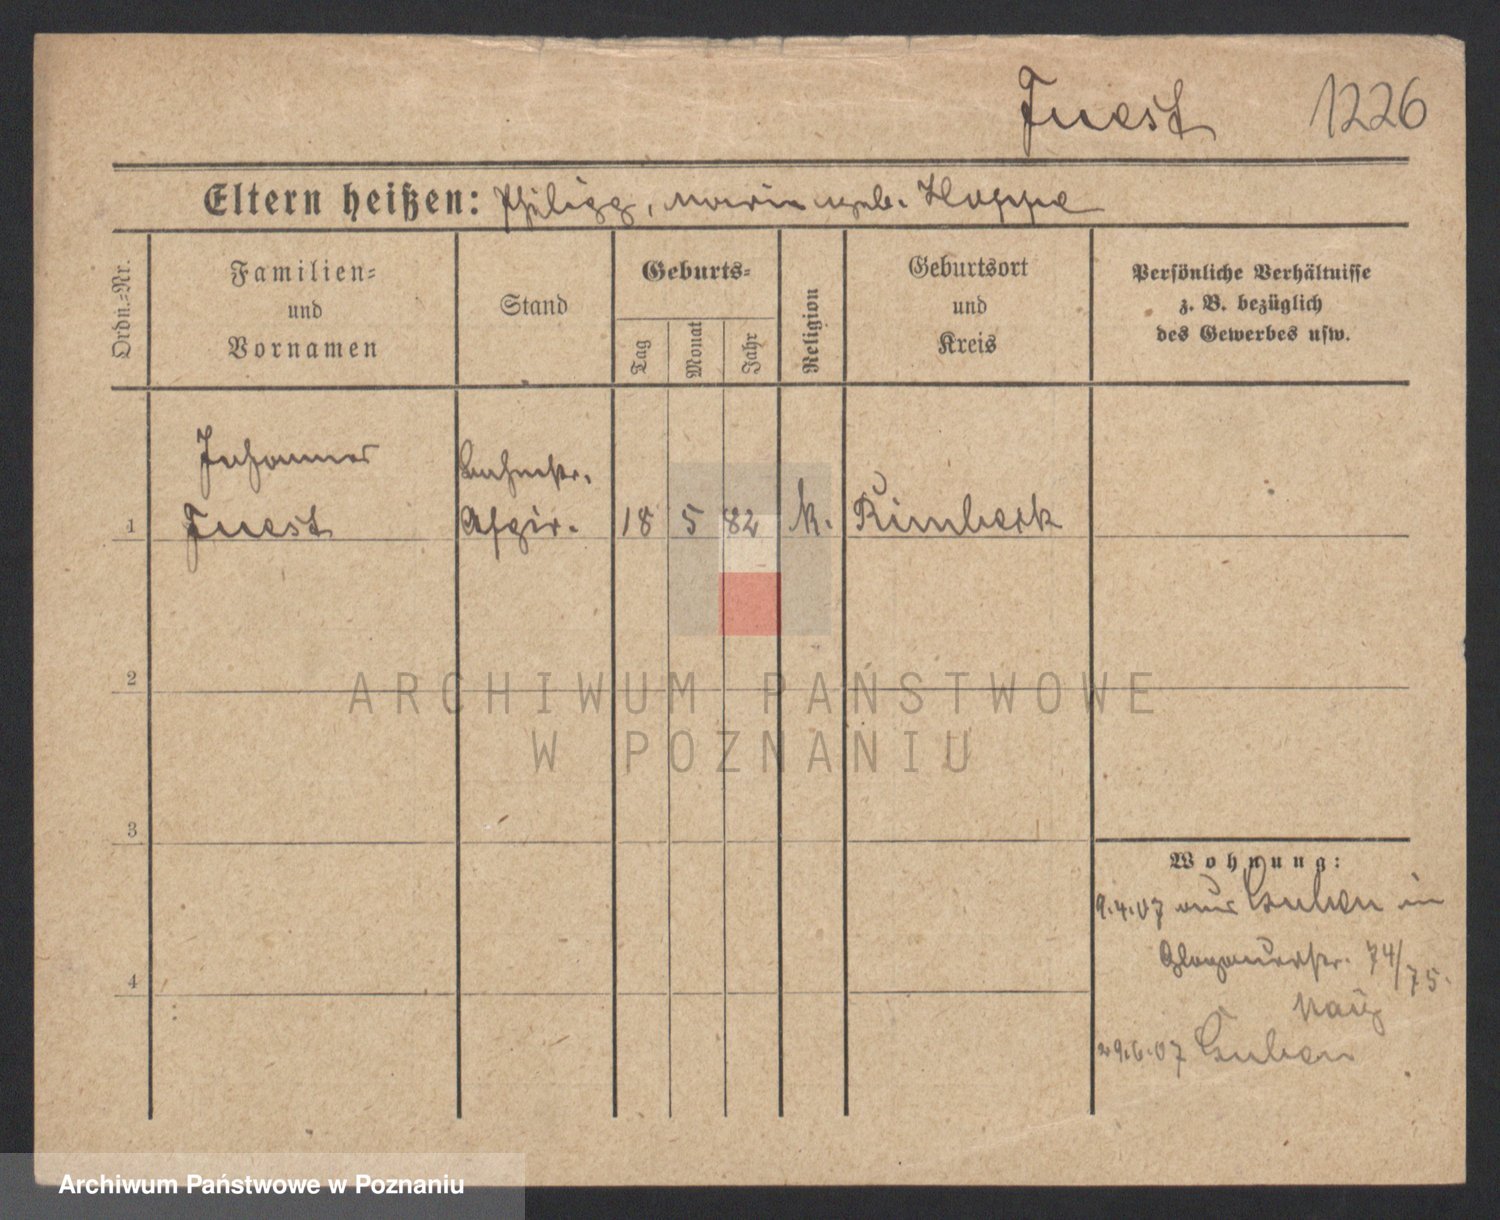 Juest 1226
Eltern heißen: Philipp, Marie geb. Hoppe
Ordn.-Nr.
Familien-
und
Vornamen
Stand
Geburts-
Tag
Monat
Jahr
Religion
Geburtsort
und
Kreis
Persönliche Verhältnisse
z. B. bezüglich
des Gewerbes usw.
Johannes
Juest
Aspir.
1
18 5 82 k. Rimbeck
2
ARCHIWUM PAŃSTWOWE
W POZNANIU
3
Wohnung:
9.4.07 aus Guben in
Glogauerstr. 74/75.
4
nach
29.6.07 Guben
Archiwum Państwowe w Poznaniu